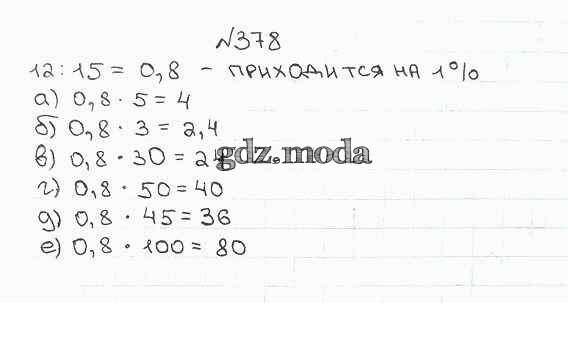 №378
12:15 = 0,8 - ПРИХОДИТСЯ НА 1%
а) 0,8 · 5 = 4
б) 0,8 · 3 = 2,4
в) 0,8 · 30 = 24
gdz.moda
г) 0,8 · 50 = 40
д) 0,8 · 45 = 36
е) 0,8 · 100 = 80